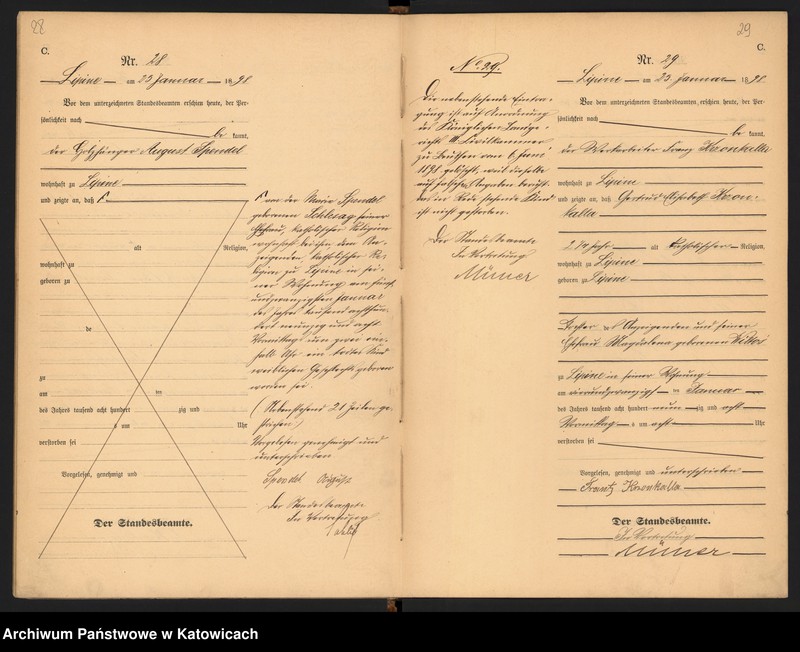 28
C.
Nr. 28
Lipine am 25 Januar 1898
Vor dem unterzeichneten Standesbeamten erschien heute, der Per-
sönlichkeit nach
be kannt,
der August Spendel
wohnhaft zu Lipine
und zeigte an, daß
alt Religion,
wohnhaft zu
geboren zu
de
zu
am ten
des Jahres tausend acht hundert zig und
um Uhr
verstorben sei
Vorgelesen, genehmigt und
Der Standesbeamte.
von der Marie Spendel
geborenen seiner
Ehefrau, katholischer Religion
wohnhaft bei ihm, dem An-
zeigenden, katholischer Re-
ligion zu Lipine in sei-
ner Wohnung am fünf
undzwanzigsten Januar
des Jahres tausend achthun-
dert neunzig und acht
Vormittags um zwei ein
halb Uhr ein todtes Kind
weiblichen Geschlechts geboren
worden sei.
(Nebenstehend 21 Zeilen ge-
strichen)
Vorgelesen genehmigt und
unterschrieben
Spendel August
Der Standesbeamte
In Vertretung
29
C.
No 29.
Die nebenstehende Eintra-
gung ist auf Anordnung
des Königlichen Landge-
richts Civilkammer
zu Beuthen vom 6. Juni
1898 gelöscht, weil dieselbe
auf falschen Angaben beruht,
das in Rede stehende Kind
ist nicht gestorben.
Der Standesbeamte
In Vertretung
Nr. 29
Lipine am 25 Januar 1898
Vor dem unterzeichneten Standesbeamten erschien heute, der Per-
sönlichkeit nach
be kannt,
der Franz Kronkalla
wohnhaft zu Lipine
und zeigte an, daß Gertrud Elisabeth Kron-
kalla
alt katholischer Religion,
wohnhaft zu Lipine
geboren zu Lipine
Tochter des Anzeigenden und seiner
Ehefrau Magdalena geborenen
zu Lipine in seiner Wohnung
am vierundzwanzigsten Januar
des Jahres tausend acht hundert neun zig und acht
Vormittag s um acht Uhr
verstorben sei
Vorgelesen, genehmigt und unterschrieben
Frantz Kronkalla
Der Standesbeamte.
In Vertretung
Archiwum Państwowe w Katowicach